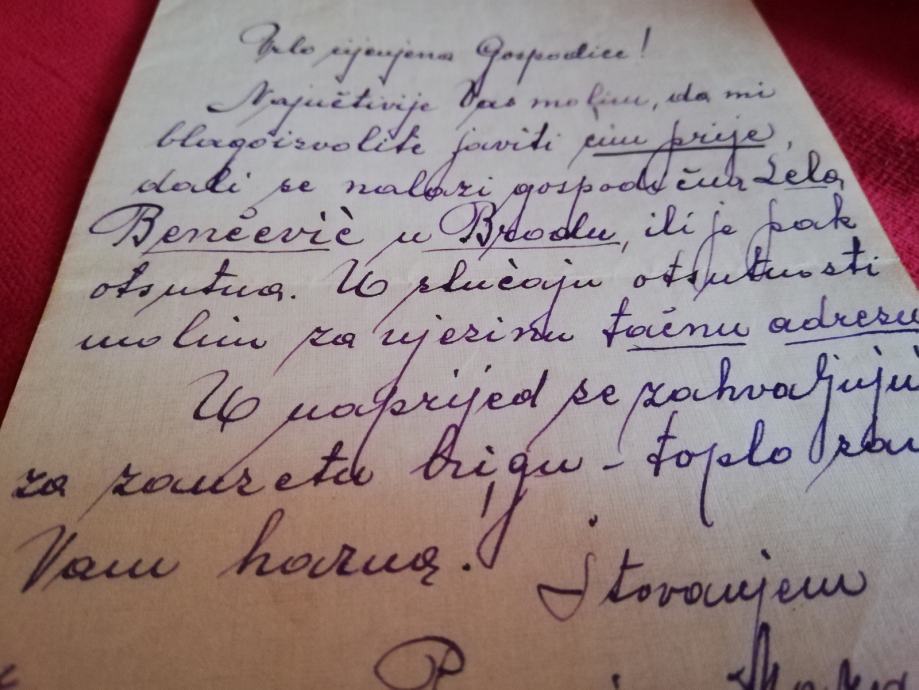 Vrlo cijenjena Gospodice!
Najučtivije Vas molim, da mi
blagoizvolite javiti čim prije,
dali se nalazi gospodična Lela
Benčević u Brodu, ili je pak
otsutna. U slučaju otsutnosti
molim za njezinu tačnu adresu
U naprijed se zahvaljuju
za zauzetu brigu - toplo sam
Vam harna.
Štovanjem